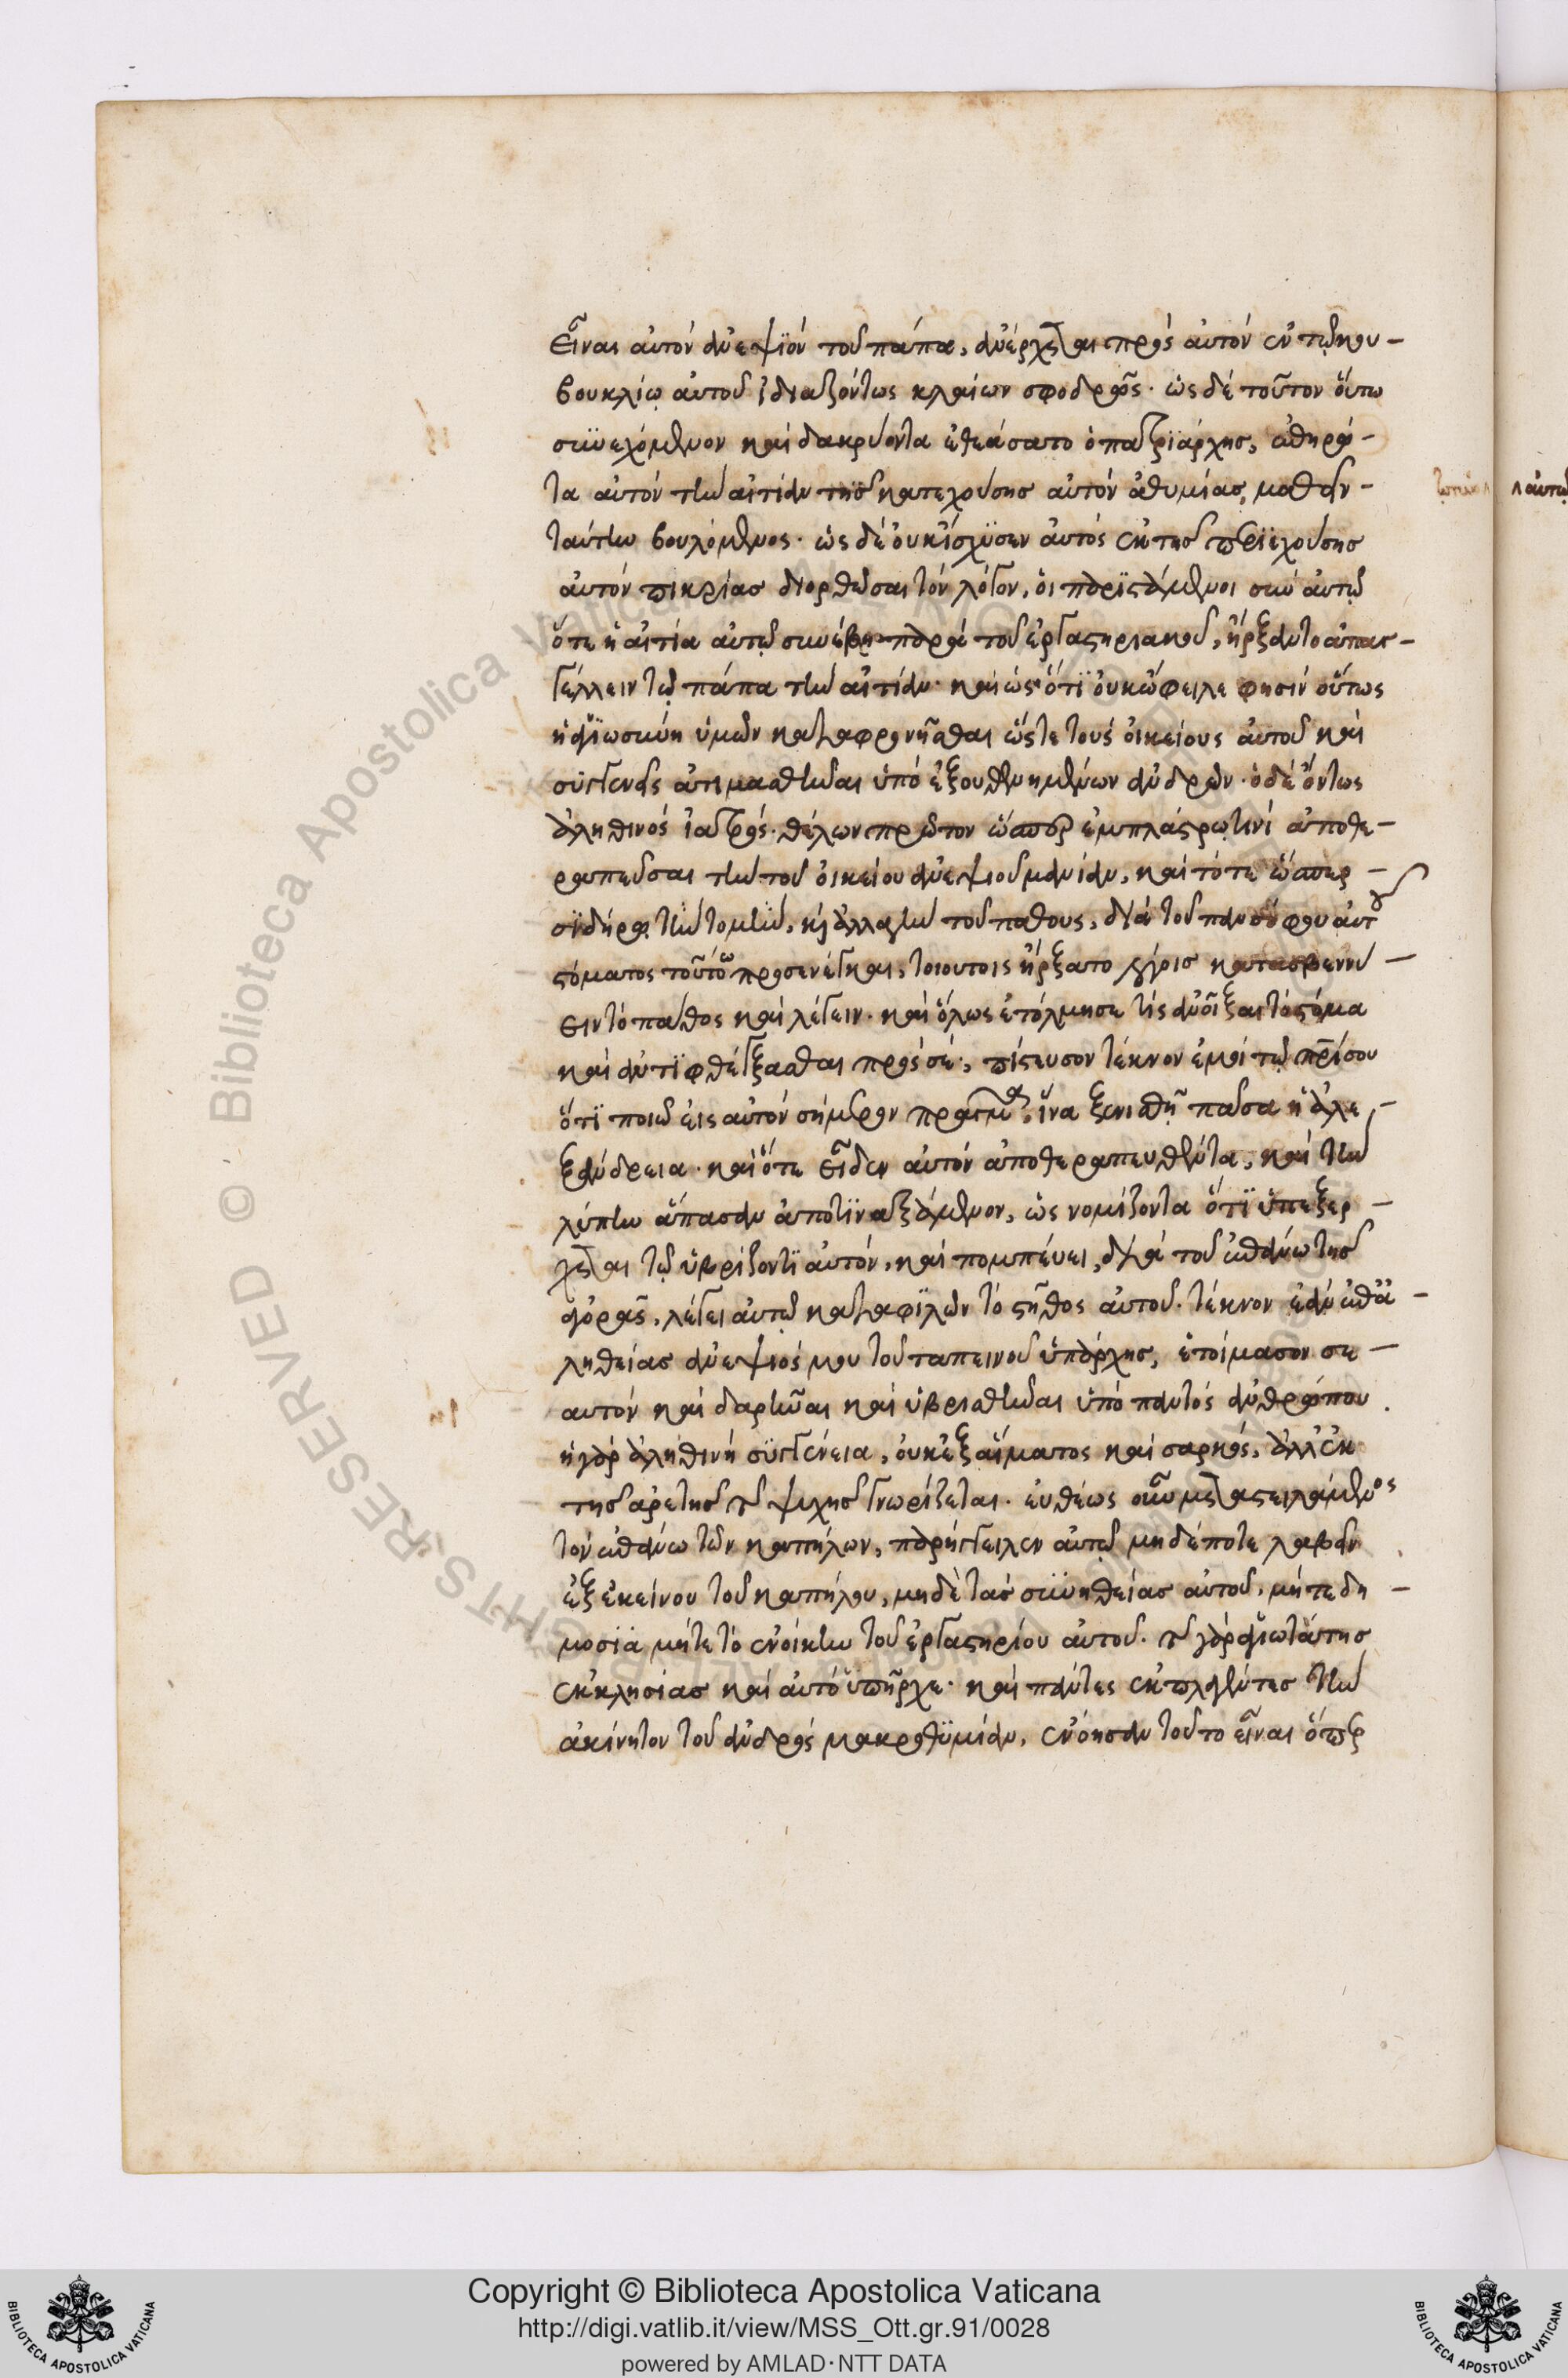 εἶναι αὐτὸν ἀνεψϊὸν τοῦ πάπα, ἀνέρχεται πρὸς αὐτὸν ἐν τῷ κου-
βουκλίῳ αὐτοῦ ἰδιαζόντως κλαίων σφοδρῶς· ὡς δὲ τοῦτον οὕτω
συνεχόμενον καὶ δακρύοντα ἐθεάσατο ὁ πατρϊάρχης, ἐπηρώ-
τα αὐτὸν τὴν αἰτίαν τῆς κατεχούσης αὐτὸν ἀθυμίας, μαθεῖν
ταύτην βουλόμενος· ὡς δὲ οὐκ ἴσχϋσεν αὐτὸς ἐκ τῆς περϊεχούσης
αὐτὸν πικρίας διορθῶσαι τὸν λόγον, οἱ παρϊστάμενοι σὺν αὐτῷ
ὅτε ἡ αἰτία αὐτῷ συνέβη παρὰ τοῦ ἐργαστηριακοῦ, ἤρξαντο ἀπαγ-
γέλλειν τῷ πάπα τὴν αἰτίαν· καὶ ὡς ὅτϊ οὐκ ὤφειλε φησὶν οὕτως
ἡ ἁγϊωσύνη ὑμῶν καταφρονῆσθαι ὥστε τοὺς οἰκείους αὐτοῦ καὶ
σϋγγενεῖς ἀτιμασθῆναι ὑπὸ ἐξουθενημένων ἀνδρῶν· ὁ δὲ ὄντως
ἀληθινὸς ἰατρός· θέλων πρῶτον ὥσπερ ἐμπλάστρῳ τινὶ ἀποθε-
ραπεῦσαι τὴν τοῦ οἰκείου ἀνεψιοῦ μανίαν, καὶ τότε ὥσπερ
σϊδήρῳ τὴν τομὴν, καὶ ἀλλαγὴν τοῦ πάθους, διὰ τοῦ πανσόφου αὐτοῦ
στόματος τούτῳ προσενέγκαι, τοιούτοις ἤρξατο λόγοις κατασβεννύ-
ειν τὸ πάθος καὶ λέγειν· καὶ ὅλως ἐτόλμησε τίς ἀνοῖξαι τὸ στόμα
καὶ ἀντϊφθέγξασθαι πρὸς σέ·, πίστευσον τέκνον ἐμοὶ τῷ πατρί σου
ὅτϊ ποιῶ εἰς αὐτὸν σήμερον πρᾶγμα, ἵνα ξενισθῇ πᾶσα ἡ ἀλε-
ξάνδρεια· καὶ ὅτε εἶδεν αὐτὸν ἀποθεραπευθέντα, καὶ τὴν
λύπην ἅπασαν ἀποτϊναξάμενον, ὡς νομίζοντα ὅτϊ ὑπεξέρ-
χεται τῷ ὑβρίζοντϊ αὐτόν, καὶ πομπεύει, διὰ τοῦ ἐπάνω τῆς
ἀγορᾶς, λέγει αὐτῷ καταφϊλῶν τὸ στῆθος αὐτοῦ. τέκνον ἐὰν ἐπ᾽ ἀ-
ληθείας ἀνεψιός μου τοῦ ταπεινοῦ ὑπάρχης, ἑτοίμασον σε-
αυτὸν καὶ δαρῆναι καὶ ὑβρισθῆναι ὑπὸ παντὸς ἀνθρώπου.
ἡ γὰρ ἀληθινὴ σϋγγένεια, οὐκ ἐξ αἵματος καὶ σαρκός, ἀλλ᾽ ἐκ
τῆς ἀρετῆς τῆς ψυχῆς γνωρίζεται. εὐθέως οὖν μεταστειλάμενος
τὸν ἐπάνω τῶν καπήλων, παρήγγειλεν αὐτῷ μηδέποτε λαβεῖν
ἐξ ἐκείνου τοῦ καπήλου, μηδὲ τὰς συνηθείας αὐτοῦ, μήτε δη-
μοσϊα μήτε τὸ ἐνοίκιν τοῦ ἐργαστηρίου αὐτοῦ. τῆς γὰρ ἁγιωτάτης
ἐκκλησίας καὶ αὐτὸ ὑπῆρχε· καὶ πάντες ἐκπλαγέντες τὴν
ἀκίνητον τοῦ ἀνδρὸς μακροθϋμίαν, ἐνόησαν τοῦτο εἶναι ὅπερ
Copyright © Biblioteca Apostolica Vaticana
http://digi.vatlib.it/view/MSS_Ott.gr.91/0028
powered by AMLAD·NTT DATA